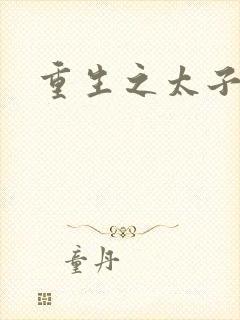 重生之太子
童丹